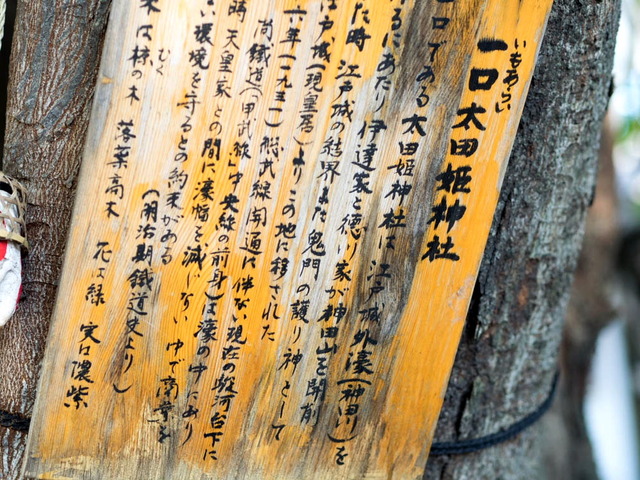 いもあらい
一口太田姫神社
一口である太田姫神社は 江戸城外濠(神田川)を
するにあたり 伊達家と徳川家が神田山を開削
した時 江戸城の結界また鬼門の護り神として
江戸城(現皇居)よりこの地に移された
六年(一九三一)総武線開通に伴ない現在の駿河台下に
尚鐵道(「甲武線」中央線の前身)は濠の中にあり
時 天皇家との間に濠幅を減じない中で高さを
い環境を守るとの約束がある
(明治期鐵道史より)
むく
木は椋の木 落葉高木 花は緑 実は濃紫